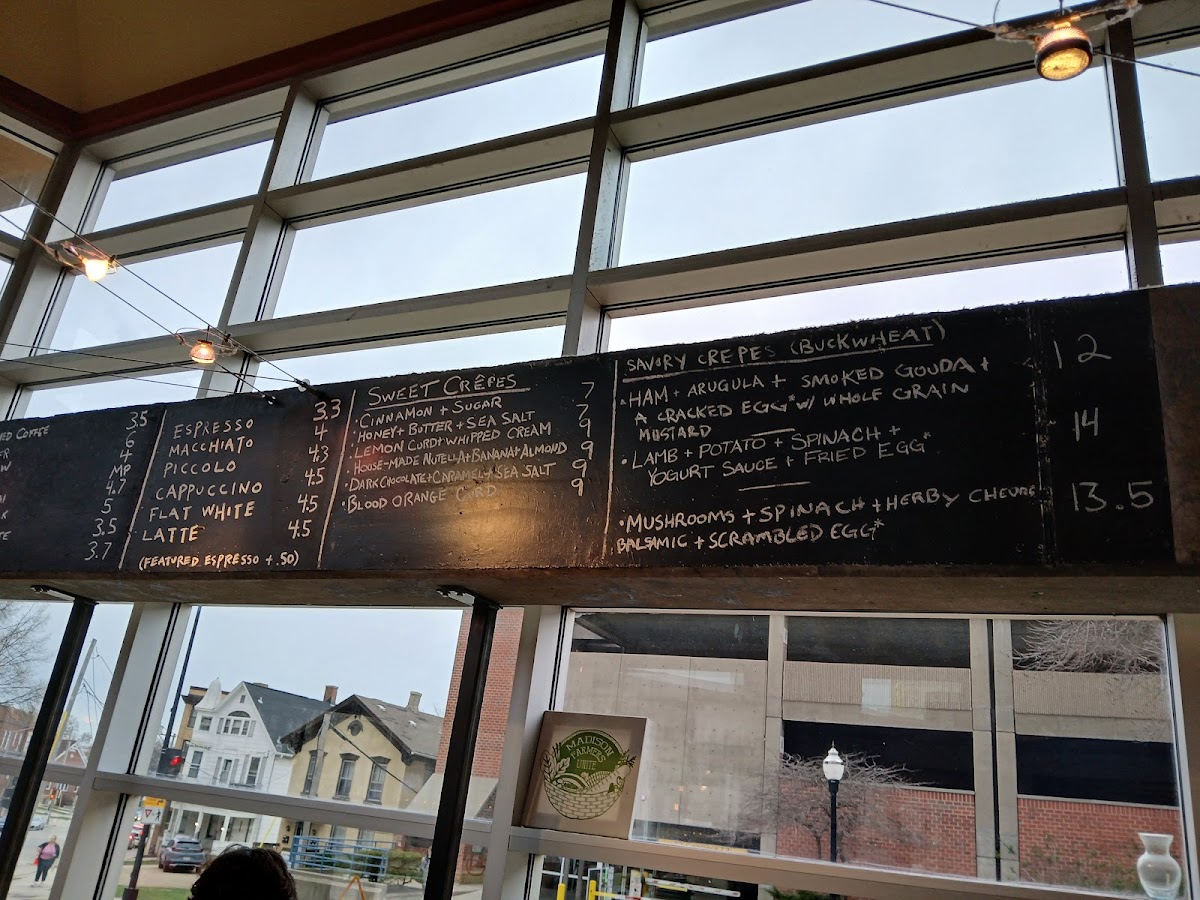 COFFEE 3.5
6
4
MP
4.7
5
3.5
3.7
ESPRESSO 3.3
MACCHIATO 4
PICCOLO 4.3
CAPPUCCINO 4.5
FLAT WHITE 4.5
LATTE 4.5
(FEATURED ESPRESSO +.50)
SWEET CRÊPES
·CINNAMON + SUGAR 7
·HONEY + BUTTER + SEA SALT 7
·LEMON CURD + WHIPPED CREAM 9
·HOUSE-MADE NUTELLA + BANANA + ALMOND 9
·DARK CHOCOLATE + CARAMEL + SEA SALT 9
·BLOOD ORANGE CURD 9
SAVORY CREPES (BUCKWHEAT)
·HAM + ARUGULA + SMOKED GOUDA + 12
A CRACKED EGG* W/ WHOLE GRAIN
MUSTARD
·LAMB + POTATO + SPINACH + 14
YOGURT SAUCE + FRIED EGG*
·MUSHROOMS + SPINACH + HERBY CHEVRE 13.5
BALSAMIC + SCRAMBLED EGG*
MADISON
FARMERS
UNITE